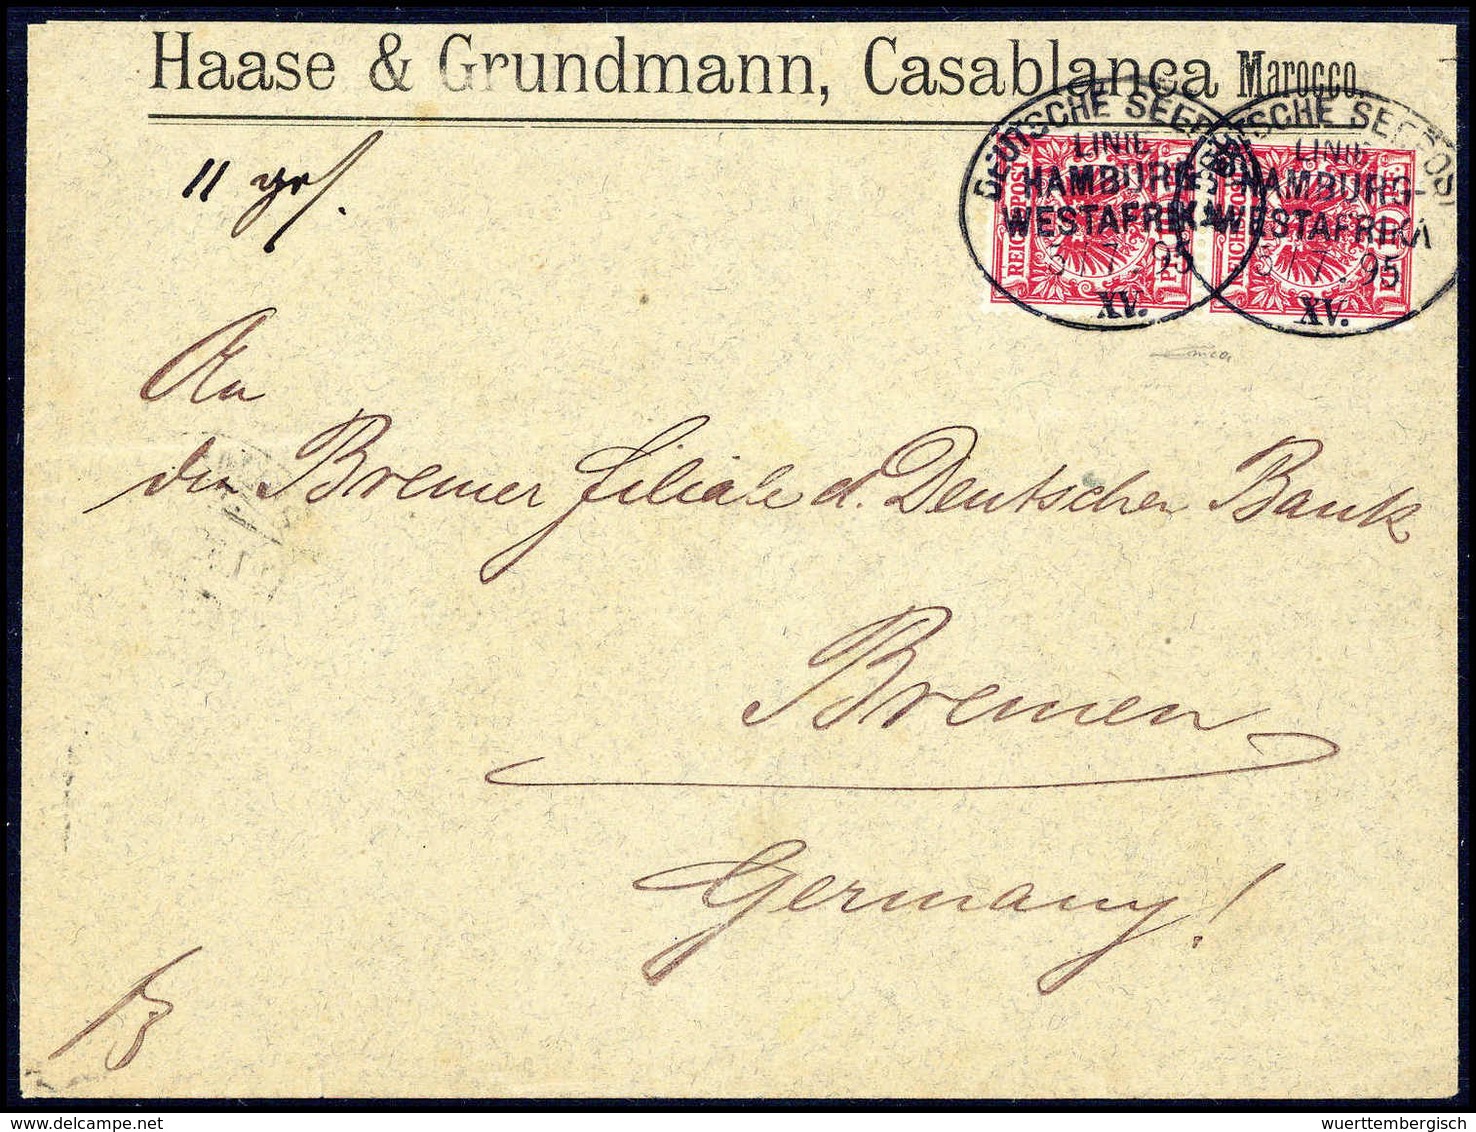 Haase & Grundmann, Casablanca Marocco.
11 grs.
DEUTSCHE SEEPOST
LINIE
HAMBURG-
WESTAFRIKA
95
XV.
DEUTSCHE SEEPOST
LINIE
HAMBURG-
WESTAFRIKA
95
XV.
REICHSPOST
REICHSPOST
An
die Bremer Filiale d. Deutschen Bank
Bremen
Germany!
wuerttembergisch